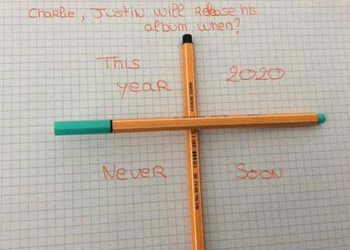 Charlie, Justin will Release his
album when?
This
year
2020
Never
Soon